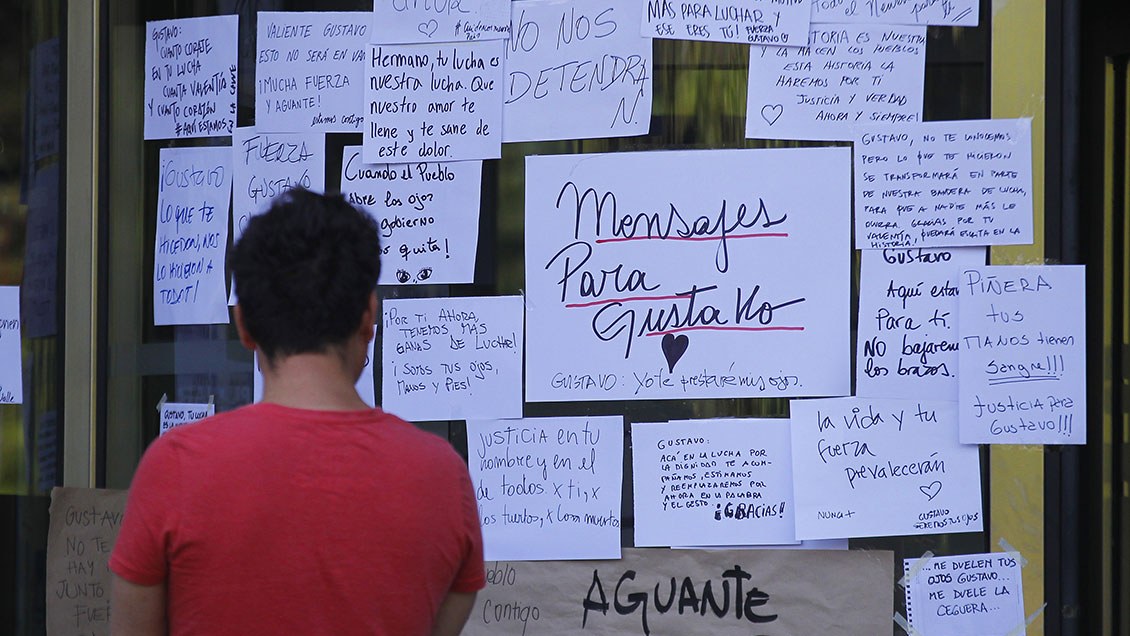 GUSTAVO:
CUANTO CORAJE
EN TU LUCHA
CUANTA VALENTÍA
Y CUANTO CORAZÓN
#AQUI ESTAMOS
VALIENTE GUSTAVO
ESTO NO SERÁ EN
¡MUCHA FUERZA
Y AGUANTE!
estamos contigo
Hermano, tu lucha es
nuestra lucha. Que
nuestro amor te
llene y te sane de
este dolor.
NO NOS
DETENDRA
N
MAS PARA LUCHAR Y
ESE ERES TÚ! FUERZA
GUSTAVO
LA HACEN LOS PUEBLOS
ESTA HISTORIA LA
HAREMOS POR TI
JUSTICIA Y VERDAD
AHORA Y SIEMPRE
¡GUSTAVO
LO QUE TE
HICIERON, NOS
LO HICIERON A
TODOS!
FUERZA
GUSTAVO
Cuando el Pueblo
Abre los ojos
gobierno
quita!
Mensajes
Para
Gustavo
GUSTAVO: Yo te prestaré mis ojos.
GUSTAVO, NO TE CONOCEMOS
PERO LO QUE TE HICIERON
SE TRANSFORMARÁ EN PARTE
DE NUESTRA BANDERA DE LUCHA,
PARA QUE A NADIE MÁS LE
OCURRA. GRACIAS POR TU
VALENTÍA, QUEDARÁ ESCRITA EN LA
HISTORIA.
¡POR TI AHORA
TENEMOS MÁS
GANAS DE LUCHAR!
¡SOMOS TUS OJOS,
MANOS Y PIES!
Gustavo
Aquí
Para ti.
NO bajaremos
los brazos.
PIÑERA
tus
MANOS tienen
Sangre!!!
Justicia para
Gustavo!!!
GUSTAVO, TU LUCHA
JUSTICIA EN TU
nombre y en el
de todos. x ti, x
los tuertos, x los muertos
GUSTAVO:
ACÁ EN LA LUCHA POR
LA DIGNIDAD TE ACOM-
PAÑAMOS, ESTIMAMOS
Y REEMPLAZAREMOS POR
AHORA EN LA PALABRA
Y EL GESTO.
¡GRACIAS!
la vida y tu
fuerza
prevalecerán
NUNCA+
GUSTAVO
SEREMOS TUS OJOS
GUSTAVO
NO TE
HAY
JUNTO
FUE
Contigo
AGUANTE
... ME DUELEN TUS
OJOS GUSTAVO...
ME DUELE LA
CEGUERA...